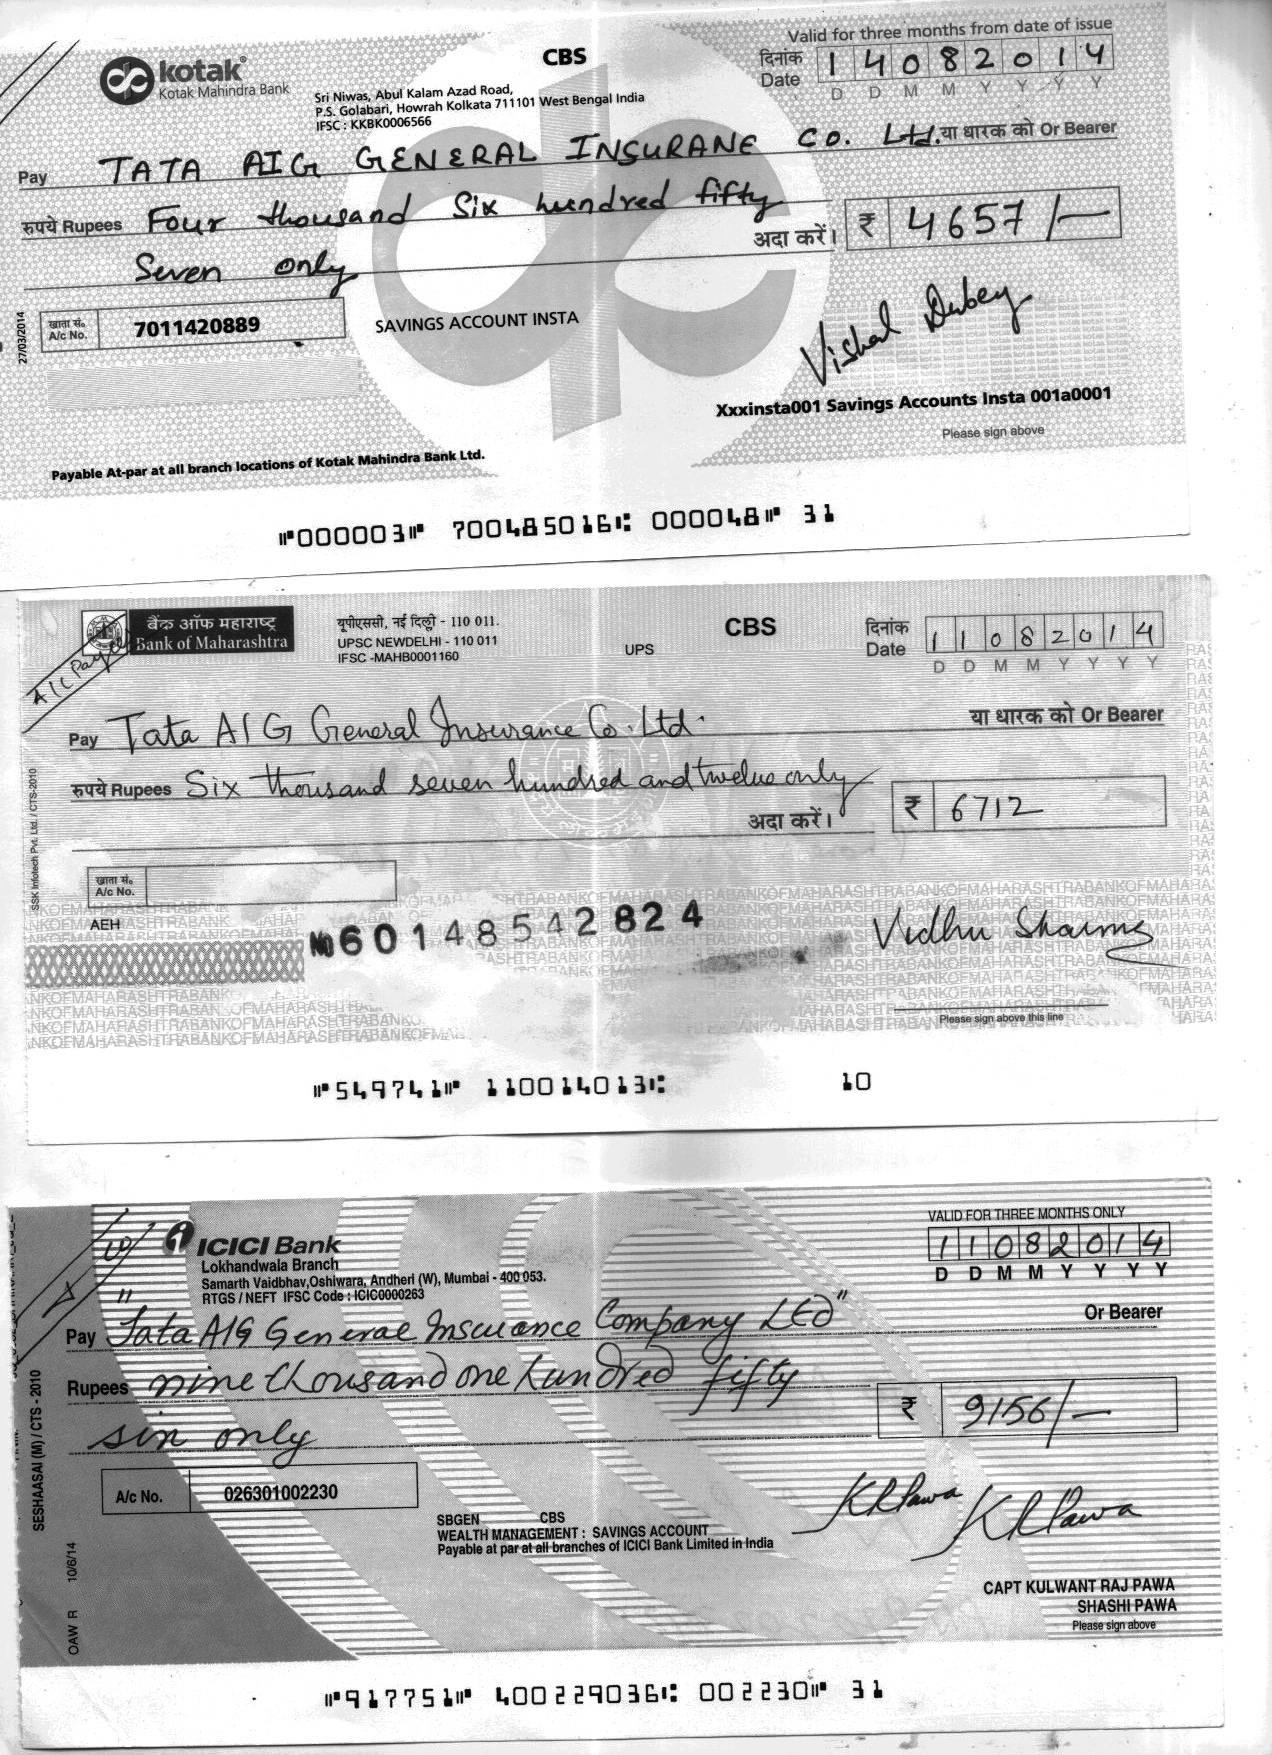 Valid for three months from date of issue
kotak
Kotak Mahindra Bank
CBS
दिनांक
Date
1 4 0 8 2 0 1 4
D D M M Y Y Y Y
Sri Niwas, Abul Kalam Azad Road,
P.S. Golabari, Howrah Kolkata 711101 West Bengal India
IFSC : KKBK0006566
Pay TATA AIG GENERAL INSURANE CO. Ltd. या धारक को Or Bearer
रुपये Rupees Four thousand Six hundred fifty
अदा करें। ₹ 4657/-
Seven only
27/03/2014
खाता सं.
A/c No. 7011420889
SAVINGS ACCOUNT INSTA
Vishal Dubey
Xxxinsta001 Savings Accounts Insta 001a0001
Please sign above
Payable At-par at all branch locations of Kotak Mahindra Bank Ltd.
⑈000003⑈ 700485016⑆ 000048⑈ 31
A/C Payee
बैंक ऑफ महाराष्ट्र
Bank of Maharashtra
यूपीएससी, नई दिल्ली - 110 011.
UPSC NEWDELHI - 110 011
IFSC -MAHB0001160
UPS
CBS
दिनांक
Date
1 1 0 8 2 0 1 4
D D M M Y Y Y Y
Pay Tata AIG General Insurance Co. Ltd. या धारक को Or Bearer
रुपये Rupees Six thousand seven hundred and twelve only
अदा करें। ₹ 6712
SSK Infotech Pvt. Ltd. / CTS-2010
खाता सं.
A/c No.
AEH
№60148542824
Vidhu Sharma
Please sign above this line
⑈549741⑈ 110014013⑆ 10
ICICI Bank
Lokhandwala Branch
Samarth Vaidbhav,Oshiwara, Andheri (W), Mumbai - 400 053.
RTGS / NEFT IFSC Code : ICIC0000263
VALID FOR THREE MONTHS ONLY
1 1 0 8 2 0 1 4
D D M M Y Y Y Y
Pay "Tata AIG General Insurance Company Ltd" Or Bearer
Rupees nine thousand one hundred fifty
₹ 9156/-
six only
SESHAASAI (M) / CTS - 2010
OAW R 10/6/14
A/c No. 026301002230
SBGEN CBS
WEALTH MANAGEMENT : SAVINGS ACCOUNT
Payable at par at all branches of ICICI Bank Limited in India
KRPawa KRPawa
CAPT KULWANT RAJ PAWA
SHASHI PAWA
Please sign above
⑈917751⑈ 400229036⑆ 002230⑈ 31